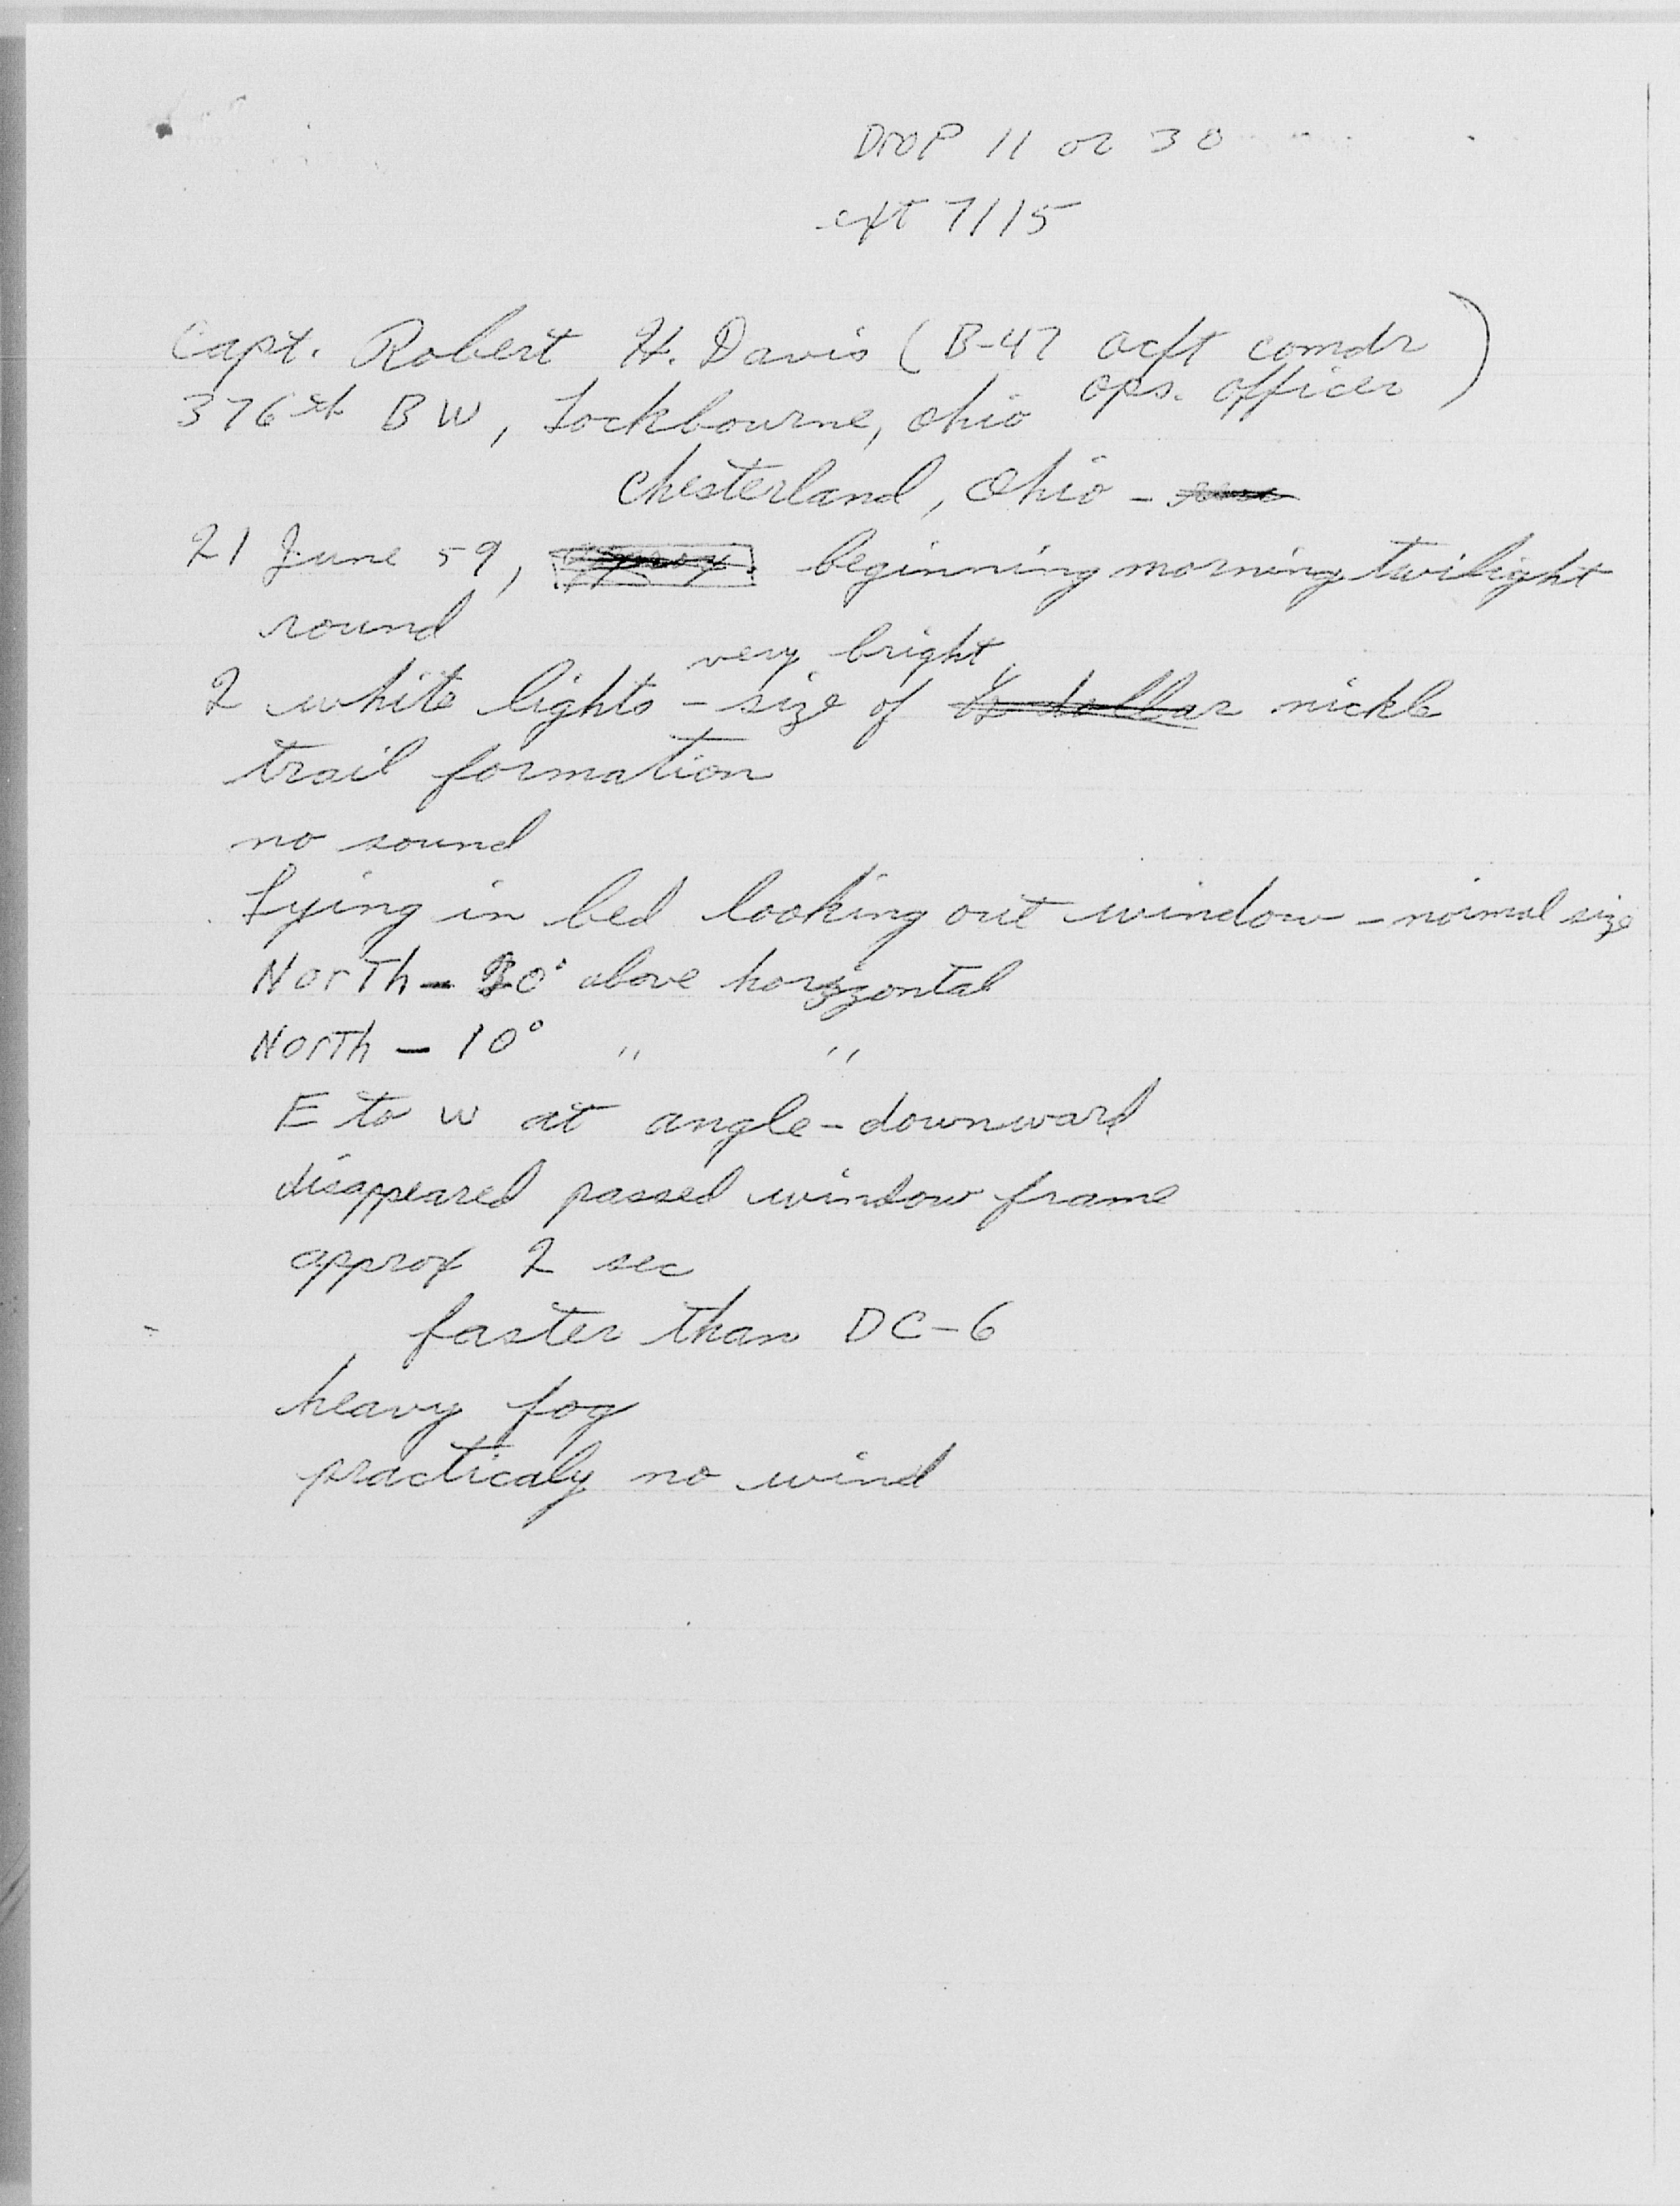 Drop 11 or 30
ext 7115
Capt. Robert H. Davis (B-47 acft comdr
ops. officer)
376th BW, Lockbourne, Ohio
Chesterland, Ohio -
21 June 59, approx. beginning morning twilight
round
very bright
2 white lights - size of ½ dollar nickle
trail formation
no sound
Lying in bed looking out window - normal size
North - 30° above horizontal
North - 10° " "
E to W at angle - downward
disappeared passed window frame
approx 2 sec
faster than DC-6
heavy fog
practicaly no wind